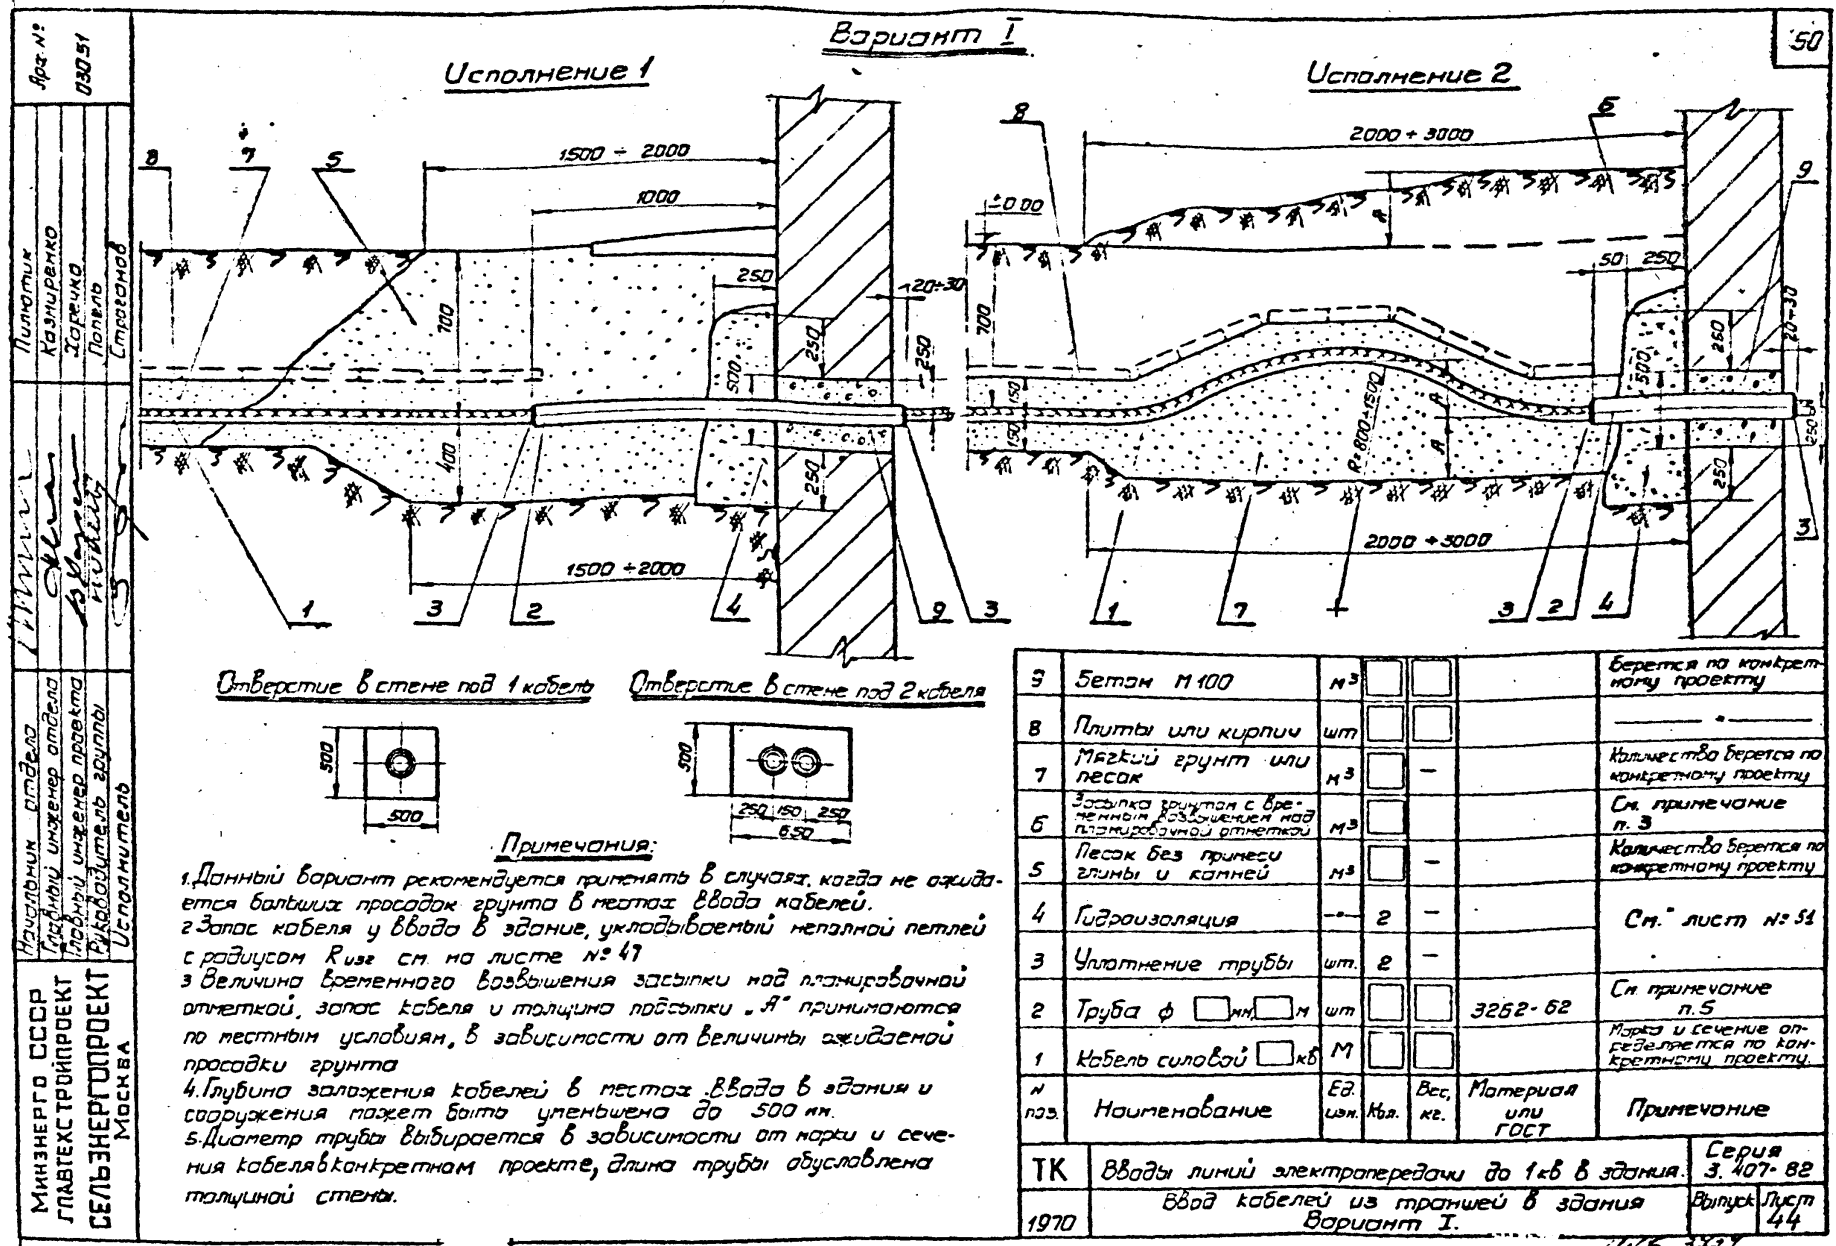 Вариант I
50
Исполнение 1
Исполнение 2
Арх. №
03051
Пилютик
Казмиренко
Харечко
Попель
Строганов
Начальник отдела
Главный инженер отдела
Главный инженер проекта
Руководитель группы
Исполнитель
МИНЭНЕРГО СССР
ГЛАВТЕХСТРОЙПРОЕКТ
СЕЛЬЭНЕРГОПРОЕКТ
МОСКВА
8
7
5
1500 ÷ 2000
1000
250
20÷30
700
500
250
250
400
250
1500 ÷ 2000
1
3
2
4
9
3
8
6
9
2000 ÷ 3000
±0.00
А
50
250
700
150
150
R=800÷1500
А
А
500
250
20÷30
250
250
2000 ÷ 3000
1
7
3
2
4
3
Отверстие в стене под 1 кабель
500
500
Отверстие в стене под 2 кабеля
500
250 150 250
650
Примечания:
1. Данный вариант рекомендуется применять в случаях, когда не ожида-
ется больших просадок грунта в местах ввода кабелей.
2 Запас кабеля у ввода в здание, укладываемый неполной петлей
с радиусом Rизг см. на листе № 47
3 Величина временного возвышения засыпки над планировочной
отметкой, запас кабеля и толщина подсыпки „А" принимаются
по местным условиям, в зависимости от величины ожидаемой
просадки грунта
4. Глубина заложения кабелей в местах ввода в здания и
сооружения может быть уменьшена до 500 мм.
5. Диаметр трубы выбирается в зависимости от марки и сече-
ния кабеля в конкретном проекте, длина трубы обусловлена
толщиной стены.
9 Бетон М100 м³ Берется по конкрет-
ному проекту
8 Плиты или кирпич шт — " —
7 Мягкий грунт или
песок м³ – Количество берется по
конкретному проекту
6 Засыпка грунтом с вре-
менным возвышением над
планировочной отметкой м³ См. примечание
п. 3
5 Песок без примеси
глины и камней м³ – Количество берется по
конкретному проекту
4 Гидроизоляция –"– 2 – См. лист № 51
3 Уплотнение трубы шт. 2 –
2 Труба ф мм м шт 3262-62 См примечание
п.5
1 Кабель силовой кв М Марка и сечение оп-
ределяется по кон-
кретному проекту.
N
поз. Наименование Ед.
изм. Кол. Вес,
кг. Материал
или
ГОСТ Примечание
ТК Вводы линий электропередачи до 1кв в здания. Серия
3.407-82
1970 Ввод кабелей из траншей в здания
Вариант I. Выпуск Лист
44